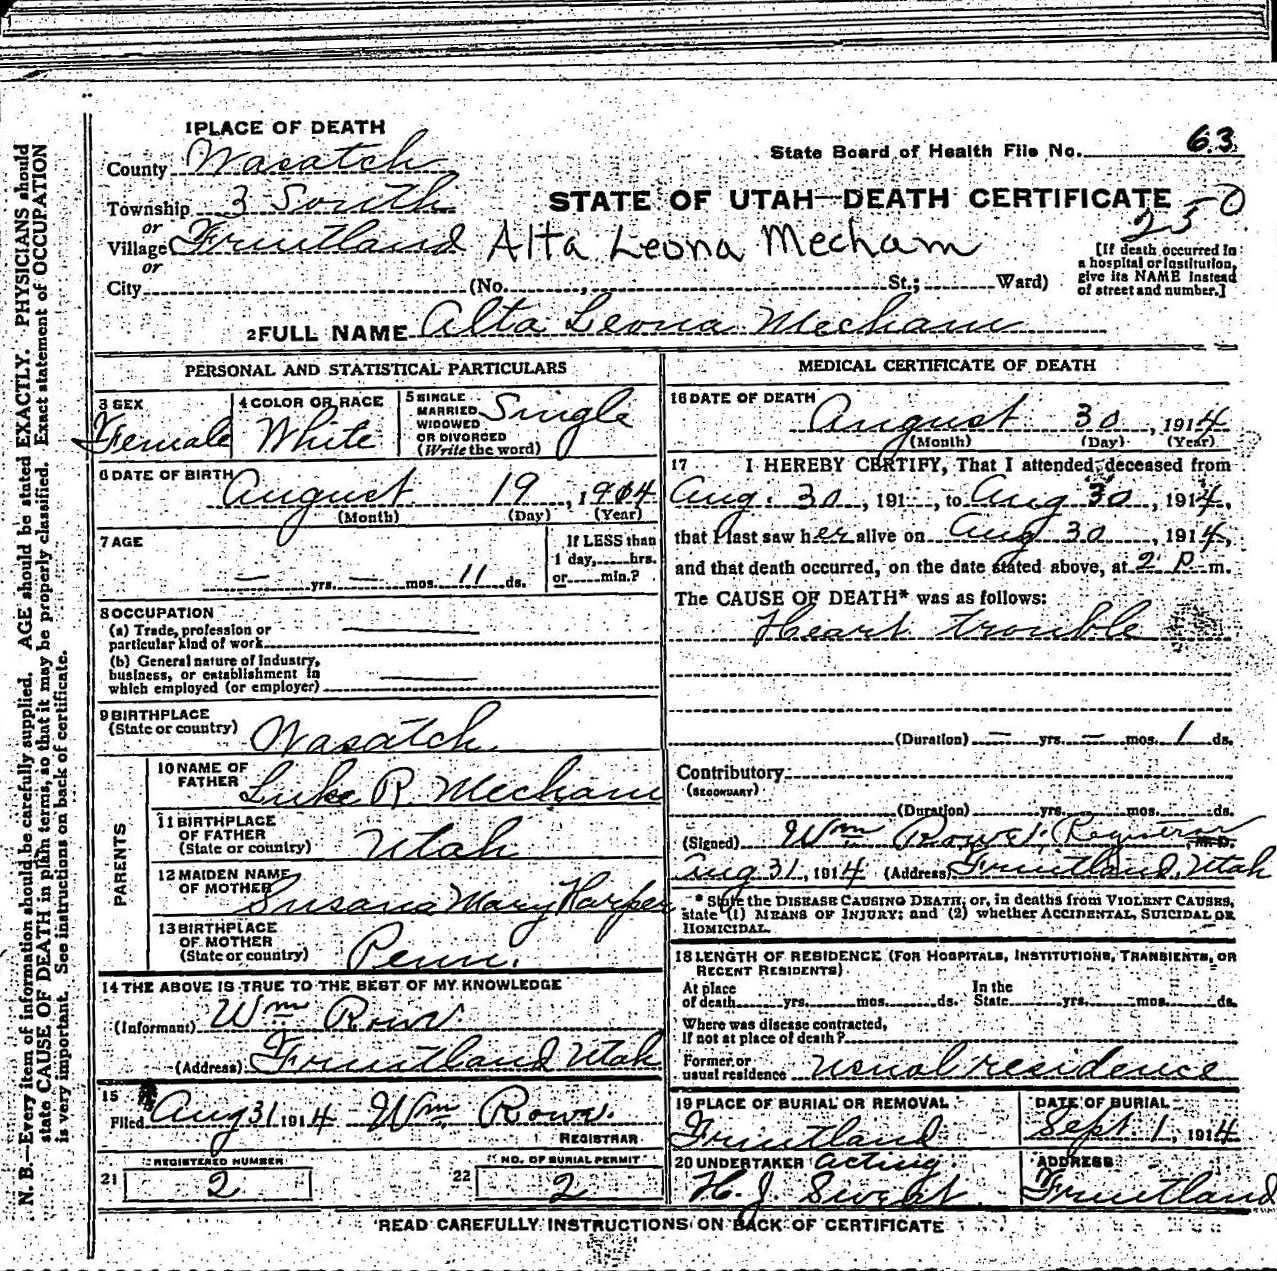 1 PLACE OF DEATH
County Wasatch
State Board of Health File No. 63
Township 3 South
STATE OF UTAH—DEATH CERTIFICATE
or
Village Fruitland Alta Leona Mecham
250
or
City (No. , St.; Ward)
[If death occurred in
a hospital or institution,
give its NAME instead
of street and number.]
2 FULL NAME Alta Leona Mecham
PERSONAL AND STATISTICAL PARTICULARS
3 SEX
Female
4 COLOR OR RACE
White
5 SINGLE
MARRIED
WIDOWED
OR DIVORCED
(Write the word)
Single
6 DATE OF BIRTH
August 19, 1914
(Month) (Day) (Year)
7 AGE
— yrs. — mos. 11 ds.
If LESS than
1 day, hrs.
or min.?
8 OCCUPATION
(a) Trade, profession or
particular kind of work —
(b) General nature of Industry,
business, or establishment in
which employed (or employer) —
9 BIRTHPLACE
(State or country) Wasatch
PARENTS
10 NAME OF
FATHER Luke R. Mecham
11 BIRTHPLACE
OF FATHER
(State or country) Utah
12 MAIDEN NAME
OF MOTHER Susana Mary Harper
13 BIRTHPLACE
OF MOTHER
(State or country) Penn.
14 THE ABOVE IS TRUE TO THE BEST OF MY KNOWLEDGE
(Informant) Wm Rowe
(Address) Fruitland Utah
15
Filed Aug 31 1914 Wm Rowe.
REGISTRAR
21 REGISTERED NUMBER
2
22 NO. OF BURIAL PERMIT
2
MEDICAL CERTIFICATE OF DEATH
16 DATE OF DEATH
August 30, 1914
(Month) (Day) (Year)
17 I HEREBY CERTIFY, That I attended deceased from
Aug. 30, 191 , to Aug 30, 1914,
that I last saw her alive on Aug 30, 1914,
and that death occurred, on the date stated above, at 2 P. m.
The CAUSE OF DEATH* was as follows:
Heart trouble
(Duration) — yrs. — mos. 1 ds.
Contributory
(SECONDARY)
(Duration) yrs. mos. ds.
(Signed) Wm Rowe, Registrar M.D.
Aug 31, 1914 (Address) Fruitland, Utah
* State the DISEASE CAUSING DEATH; or, in deaths from VIOLENT CAUSES,
state (1) MEANS OF INJURY; and (2) whether ACCIDENTAL, SUICIDAL OR
HOMICIDAL.
18 LENGTH OF RESIDENCE (FOR HOSPITALS, INSTITUTIONS, TRANSIENTS, OR
RECENT RESIDENTS)
At place
of death yrs. mos. ds.
In the
State yrs. mos. ds.
Where was disease contracted,
if not at place of death?
Former or
usual residence usual residence
19 PLACE OF BURIAL OR REMOVAL
Fruitland
DATE OF BURIAL
Sept 1, 1914
20 UNDERTAKER acting
H. J.
ADDRESS
Fruitland
READ CAREFULLY INSTRUCTIONS ON BACK OF CERTIFICATE
N. B.—Every item of information should be carefully supplied. AGE should be stated EXACTLY. PHYSICIANS should
state CAUSE OF DEATH in plain terms, so that it may be properly classified. Exact statement of OCCUPATION
is very important. See instructions on back of certificate.